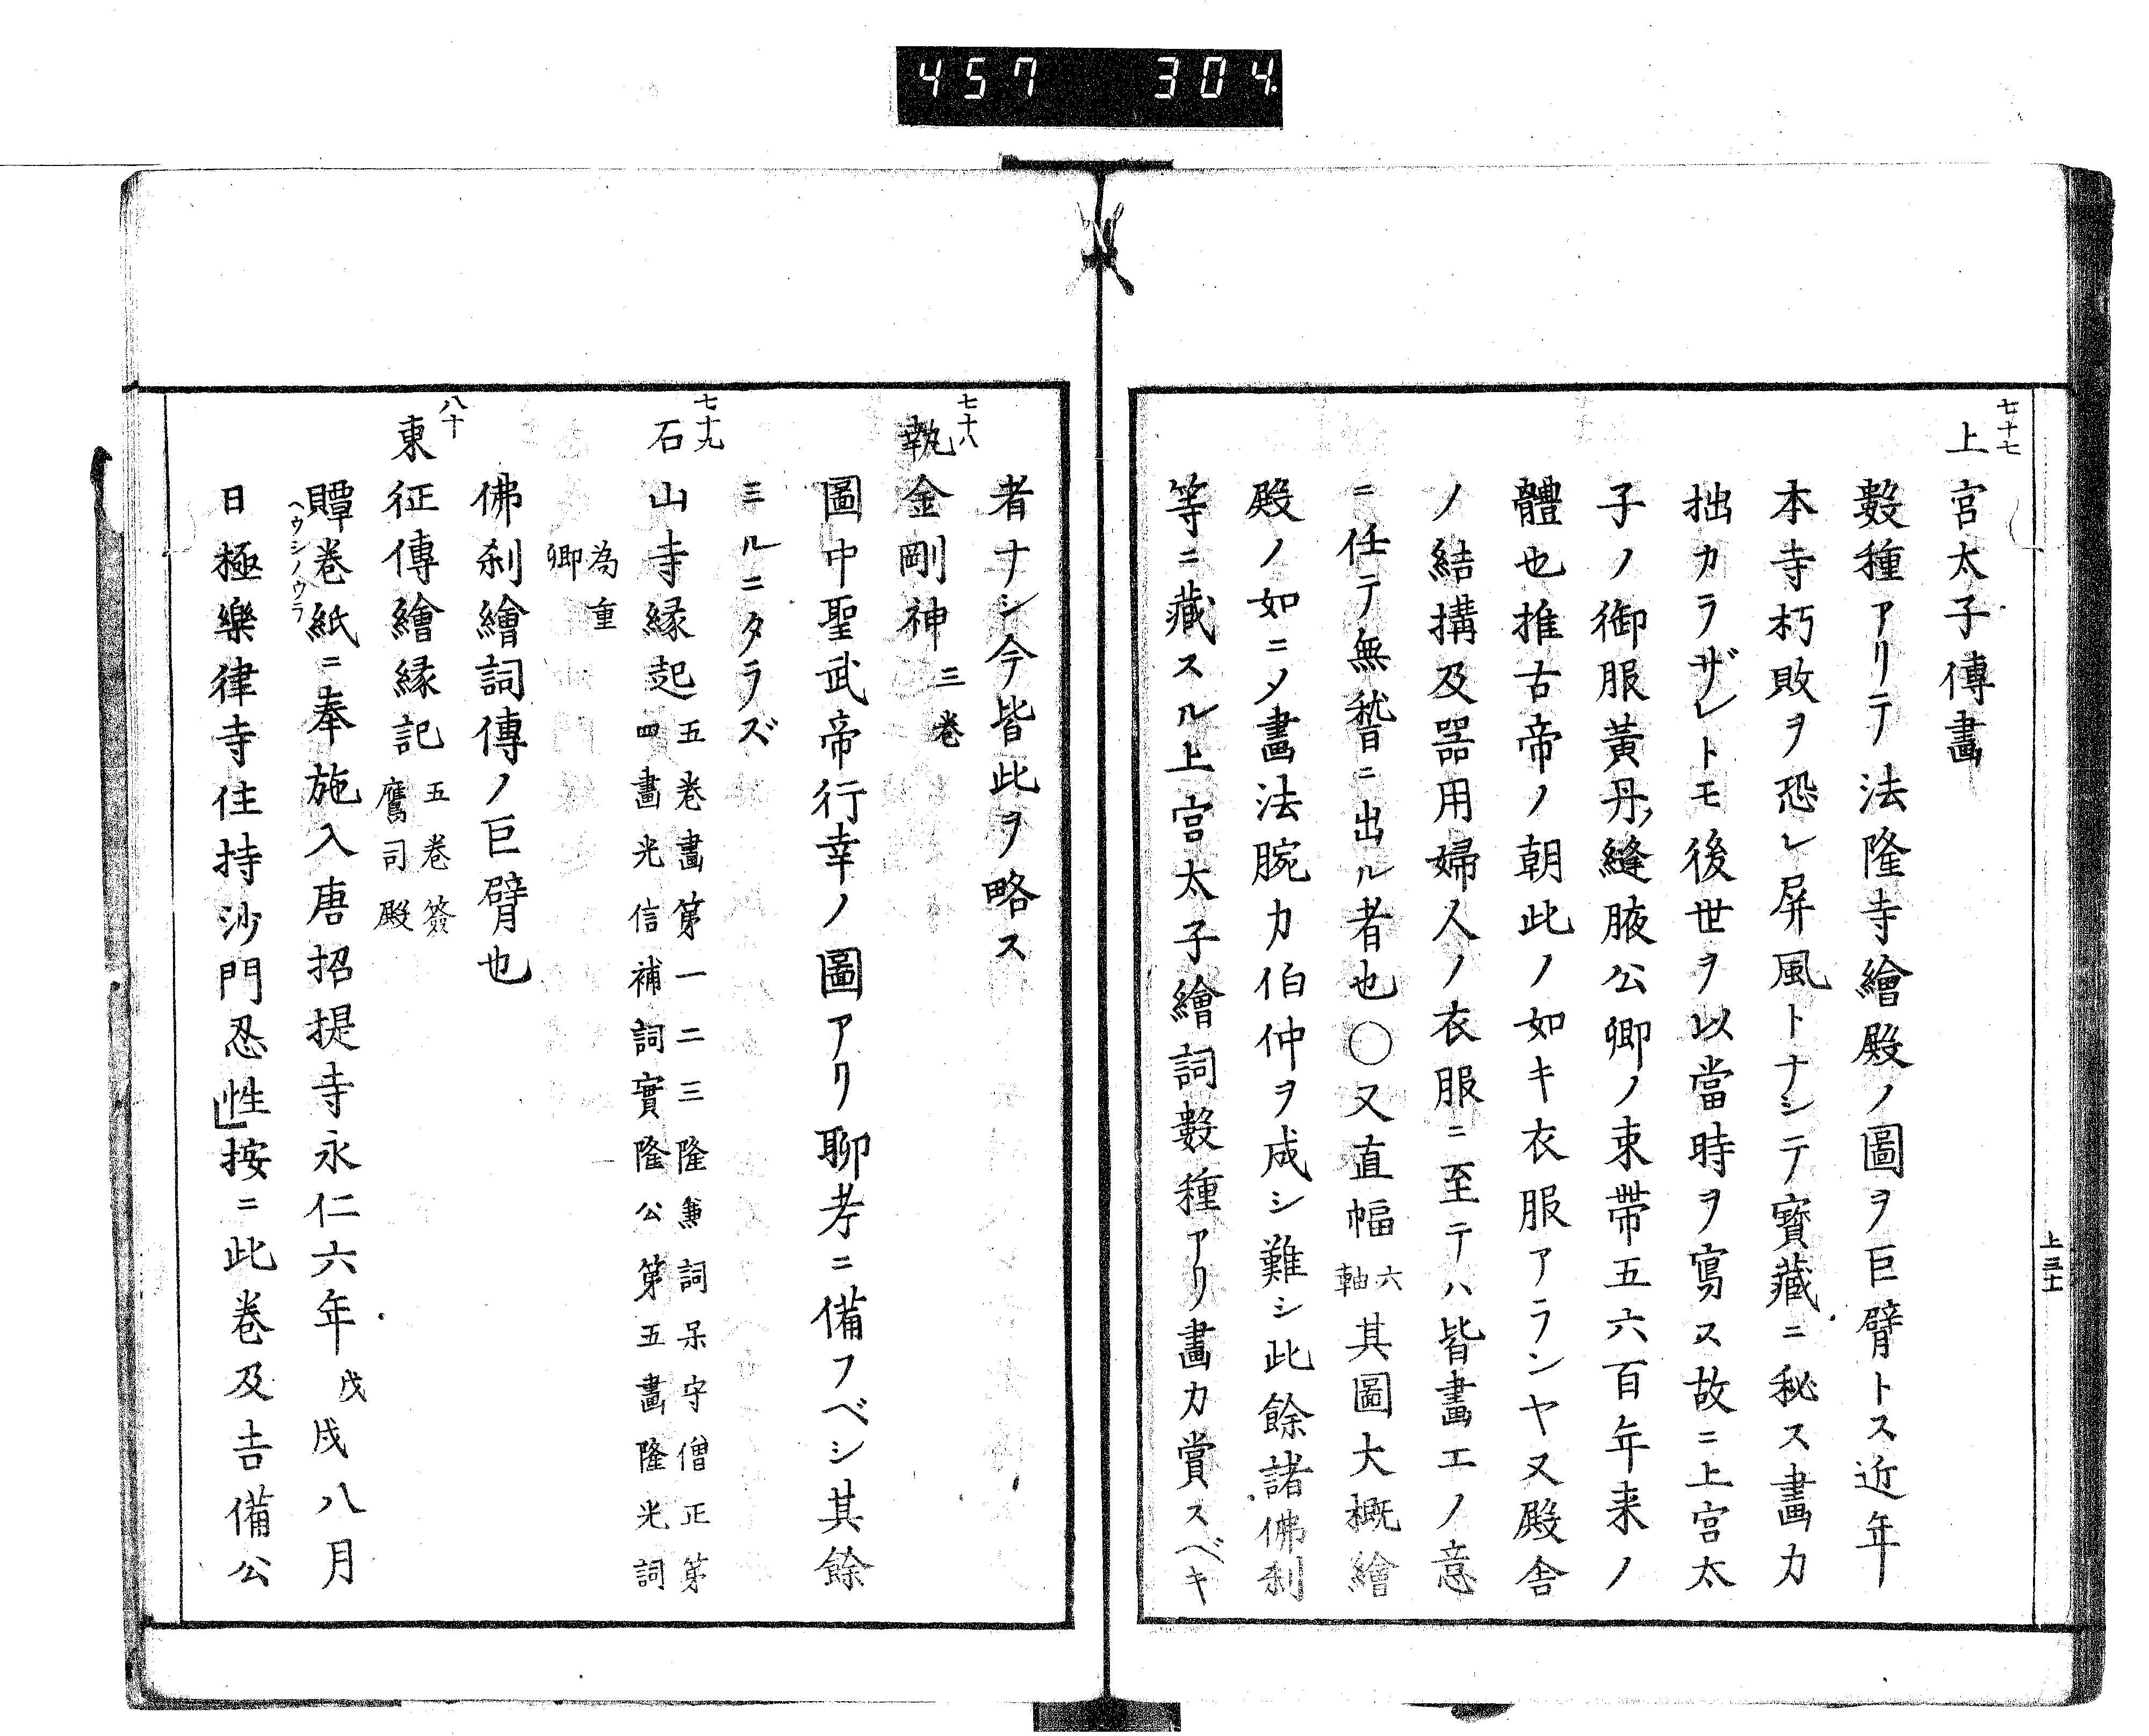 457 304
七十七
上宮太子傳畫
數種アリテ法隆寺繪殿ノ圖ヲ巨臂トス近年
本寺朽敗ヲ恐レ屏風トナシテ寳藏ニ秘ス畫力
拙カラザレトモ後世ヲ以當時ヲ寫ス故ニ上宮太
子ノ御服黃丹縫腋公卿ノ束帶五六百年来ノ
體也推古帝ノ朝此ノ如キ衣服アランヤ又殿舎
ノ結搆及器用婦人ノ衣服ニ至テハ皆畫エノ意
ニ任テ無稽ニ出ル者也○又直幅六軸其圖大概繪
殿ノ如ニメ畫法腕力伯仲ヲ成シ難シ此餘諸佛刹
等ニ藏スル上宮太子繪詞數種アリ畫力賞スベキ
上三十
者ナシ今皆此ヲ略ス
七十八
執金剛神 三卷
圖中聖武帝行幸ノ圖アリ聊考ニ備フベシ其餘
ミルニタラズ
七十九
石山寺縁起 五卷畫第一二三隆兼詞杲守僧正第
四畫光信補詞實隆公第五畫隆光詞
為重
卿
佛刹繪詞傳ノ巨臂也
八十
東征傳繪縁記 五卷簽
鷹司殿
贉卷紙ニ奉施入唐招提寺永仁六年戊戌八月
ヘウシノウラ
日極樂律寺住持沙門忍性」按ニ此卷及吉備公